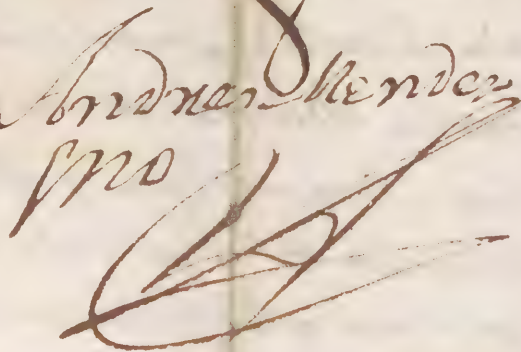 Andres Mendez
sno